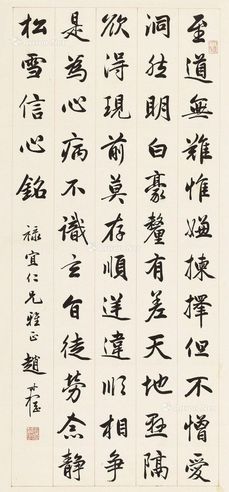 至道無難惟嫌揀擇但不憎愛
洞然明白豪釐有差天地懸隔
欲得現前莫存順逆違順相爭
是為心病不識玄旨徒勞念靜
松雪信心銘
祿宜仁兄雅正 趙